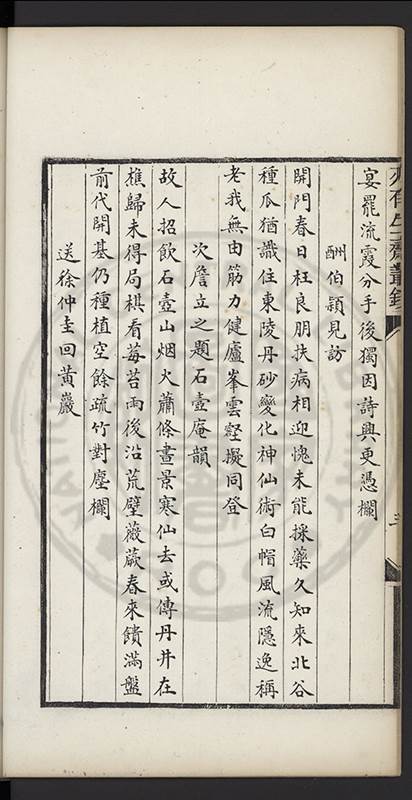 宴罷流霞分手後獨因詩興更憑欄
酬伯頴見訪
開門春日枉良朋扶病相迎愧未能採藥久知來北谷
種瓜猶識住東陵丹砂變化神仙術白帽風流隱逸稱
老我無由筋力健廬峯雲壑擬同登
次詹立之題石壺庵韻
故人招飲石壺山烟火蕭條晝景寒仙去或傳丹井在
樵歸未得局棋看莓苔雨後沿荒壁薇蕨春來饋滿盤
前代開基仍種植空餘疏竹對塵欄
送徐仲圭回黄巖